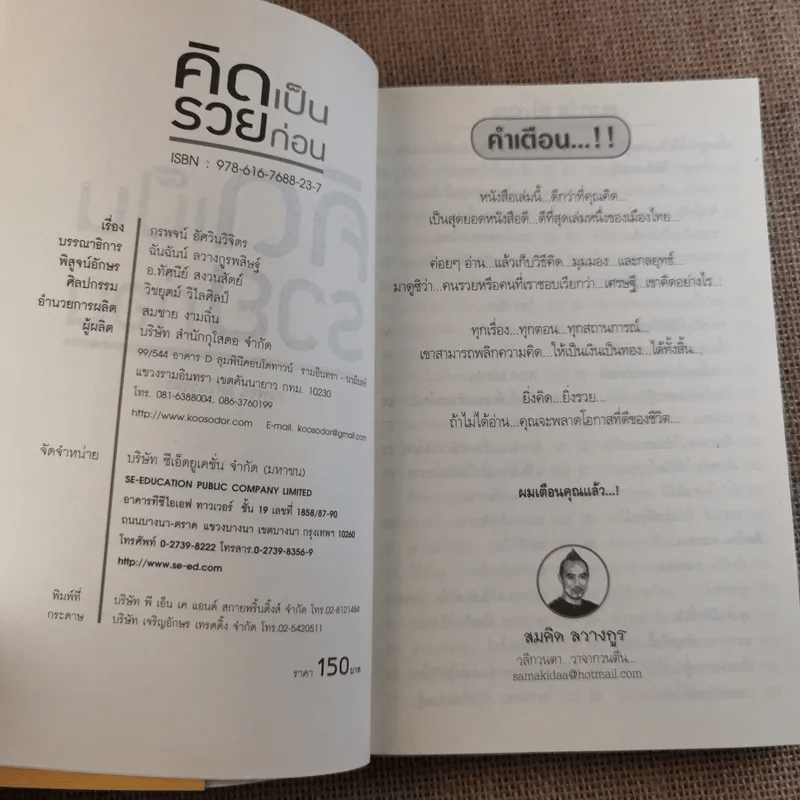 คิดเป็น
รวยก่อน
ISBN : 978-616-7688-23-7
เรื่อง กรพจน์ อัศวินวิจิตร
บรรณาธิการ ฉันฉันน์ ลวางกูรพลิษฐ์
พิสูจน์อักษร อ.ทัศนีย์ สงวนสัตย์
ศิลปกรรม วิชยุตม์ วิไลศิลป์
อำนวยการผลิต สมชาย งามถิ่น
ผู้ผลิต บริษัท สำนักกูโสดอ จำกัด
99/544 อาคาร D ลุมพินีคอนโดทาวน์ รามอินทรา - นวมินทร์
แขวงรามอินทรา เขตคันนายาว กทม. 10230
โทร. 081-6388004, 086-3760199
http://www.koosodor.com E-mail. koosodor@gmail.com
จัดจำหน่าย บริษัท ซีเอ็ดยูเคชั่น จำกัด (มหาชน)
SE-EDUCATION PUBLIC COMPANY LIMITED
อาคารทีซีไอเอฟ ทาวเวอร์ ชั้น 19 เลขที่ 1858/87-90
ถนนบางนา-ตราด แขวงบางนา เขตบางนา กรุงเทพฯ 10260
โทรศัพท์ 0-2739-8222 โทรสาร.0-2739-8356-9
http://www.se-ed.com
พิมพ์ที่ บริษัท พี เอ็น เค แอนด์ สกายพริ้นติ้งส์ จำกัด โทร.02-8121464
กระดาษ บริษัท เจริญอักษร เทรดดิ้ง จำกัด โทร.02-5420511
ราคา 150 บาท
คำเตือน...!!
หนังสือเล่มนี้...ดีกว่าที่คุณคิด...
เป็นสุดยอดหนังสือดี...ดีที่สุดเล่มหนึ่งของเมืองไทย...
ค่อยๆ อ่าน...แล้วเก็บวิธีคิด...มุมมอง...และกลยุทธ์...
มาดูซิว่า...คนรวยหรือคนที่เราชอบเรียกว่า...เศรษฐี...เขาคิดอย่างไร...
ทุกเรื่อง...ทุกตอน...ทุกสถานการณ์...
เขาสามารถพลิกความคิด...ให้เป็นเงินเป็นทอง...ได้ทั้งสิ้น...
ยิ่งคิด...ยิ่งรวย...
ถ้าไม่ได้อ่าน...คุณจะพลาดโอกาสที่ดีของชีวิต...
ผมเตือนคุณแล้ว...!
สมคิด ลวางกูร
วลีกวนตา...วาจากวนตีน...
samakidaa@hotmail.com